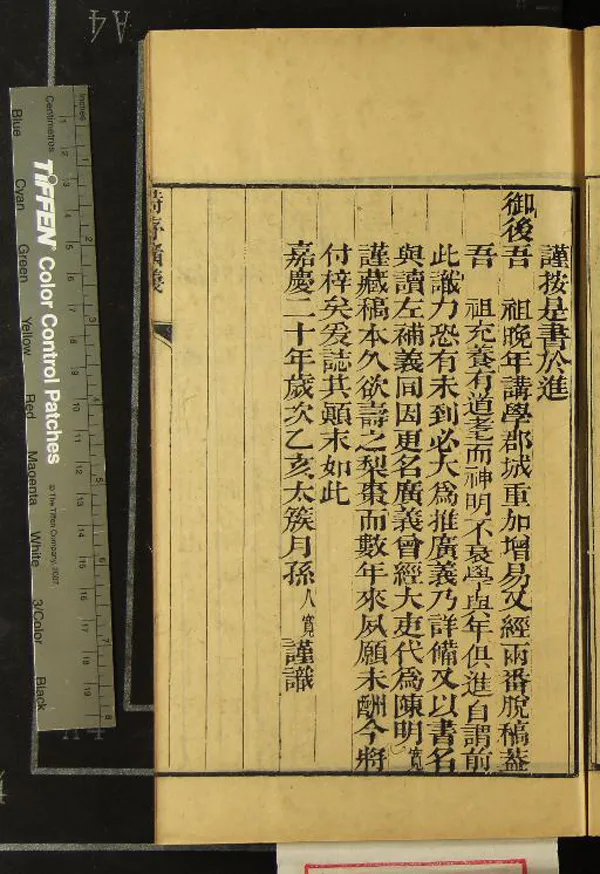 謹按是書於進
御後吾 祖晚年講學郡城重加增易又經兩番脫稿葢
吾 祖充養有道耄而神明不衰學與年俱進自謂前
此識力恐有未到必大爲推廣義乃詳備又以書名
與讀左補義同因更名廣義曾經大吏代爲陳明寬
謹藏稿本久欲壽之梨棗而數年來夙願未酬今將
付梓矣爰誌其顚末如此
嘉慶二十年歲次乙亥太簇月孫 人寬 謹識
詩序廣義
A4
Inches
Centimetres
1 2 3 4 5 6 7 8
1 2 3 4 5 6 7 8 9 10 11 12 13 14 15 16 17 18 19
TIFFEN Color Control Patches
© The Tiffen Company, 2007
Blue Cyan Green Yellow Red Magenta White 3/Color Black